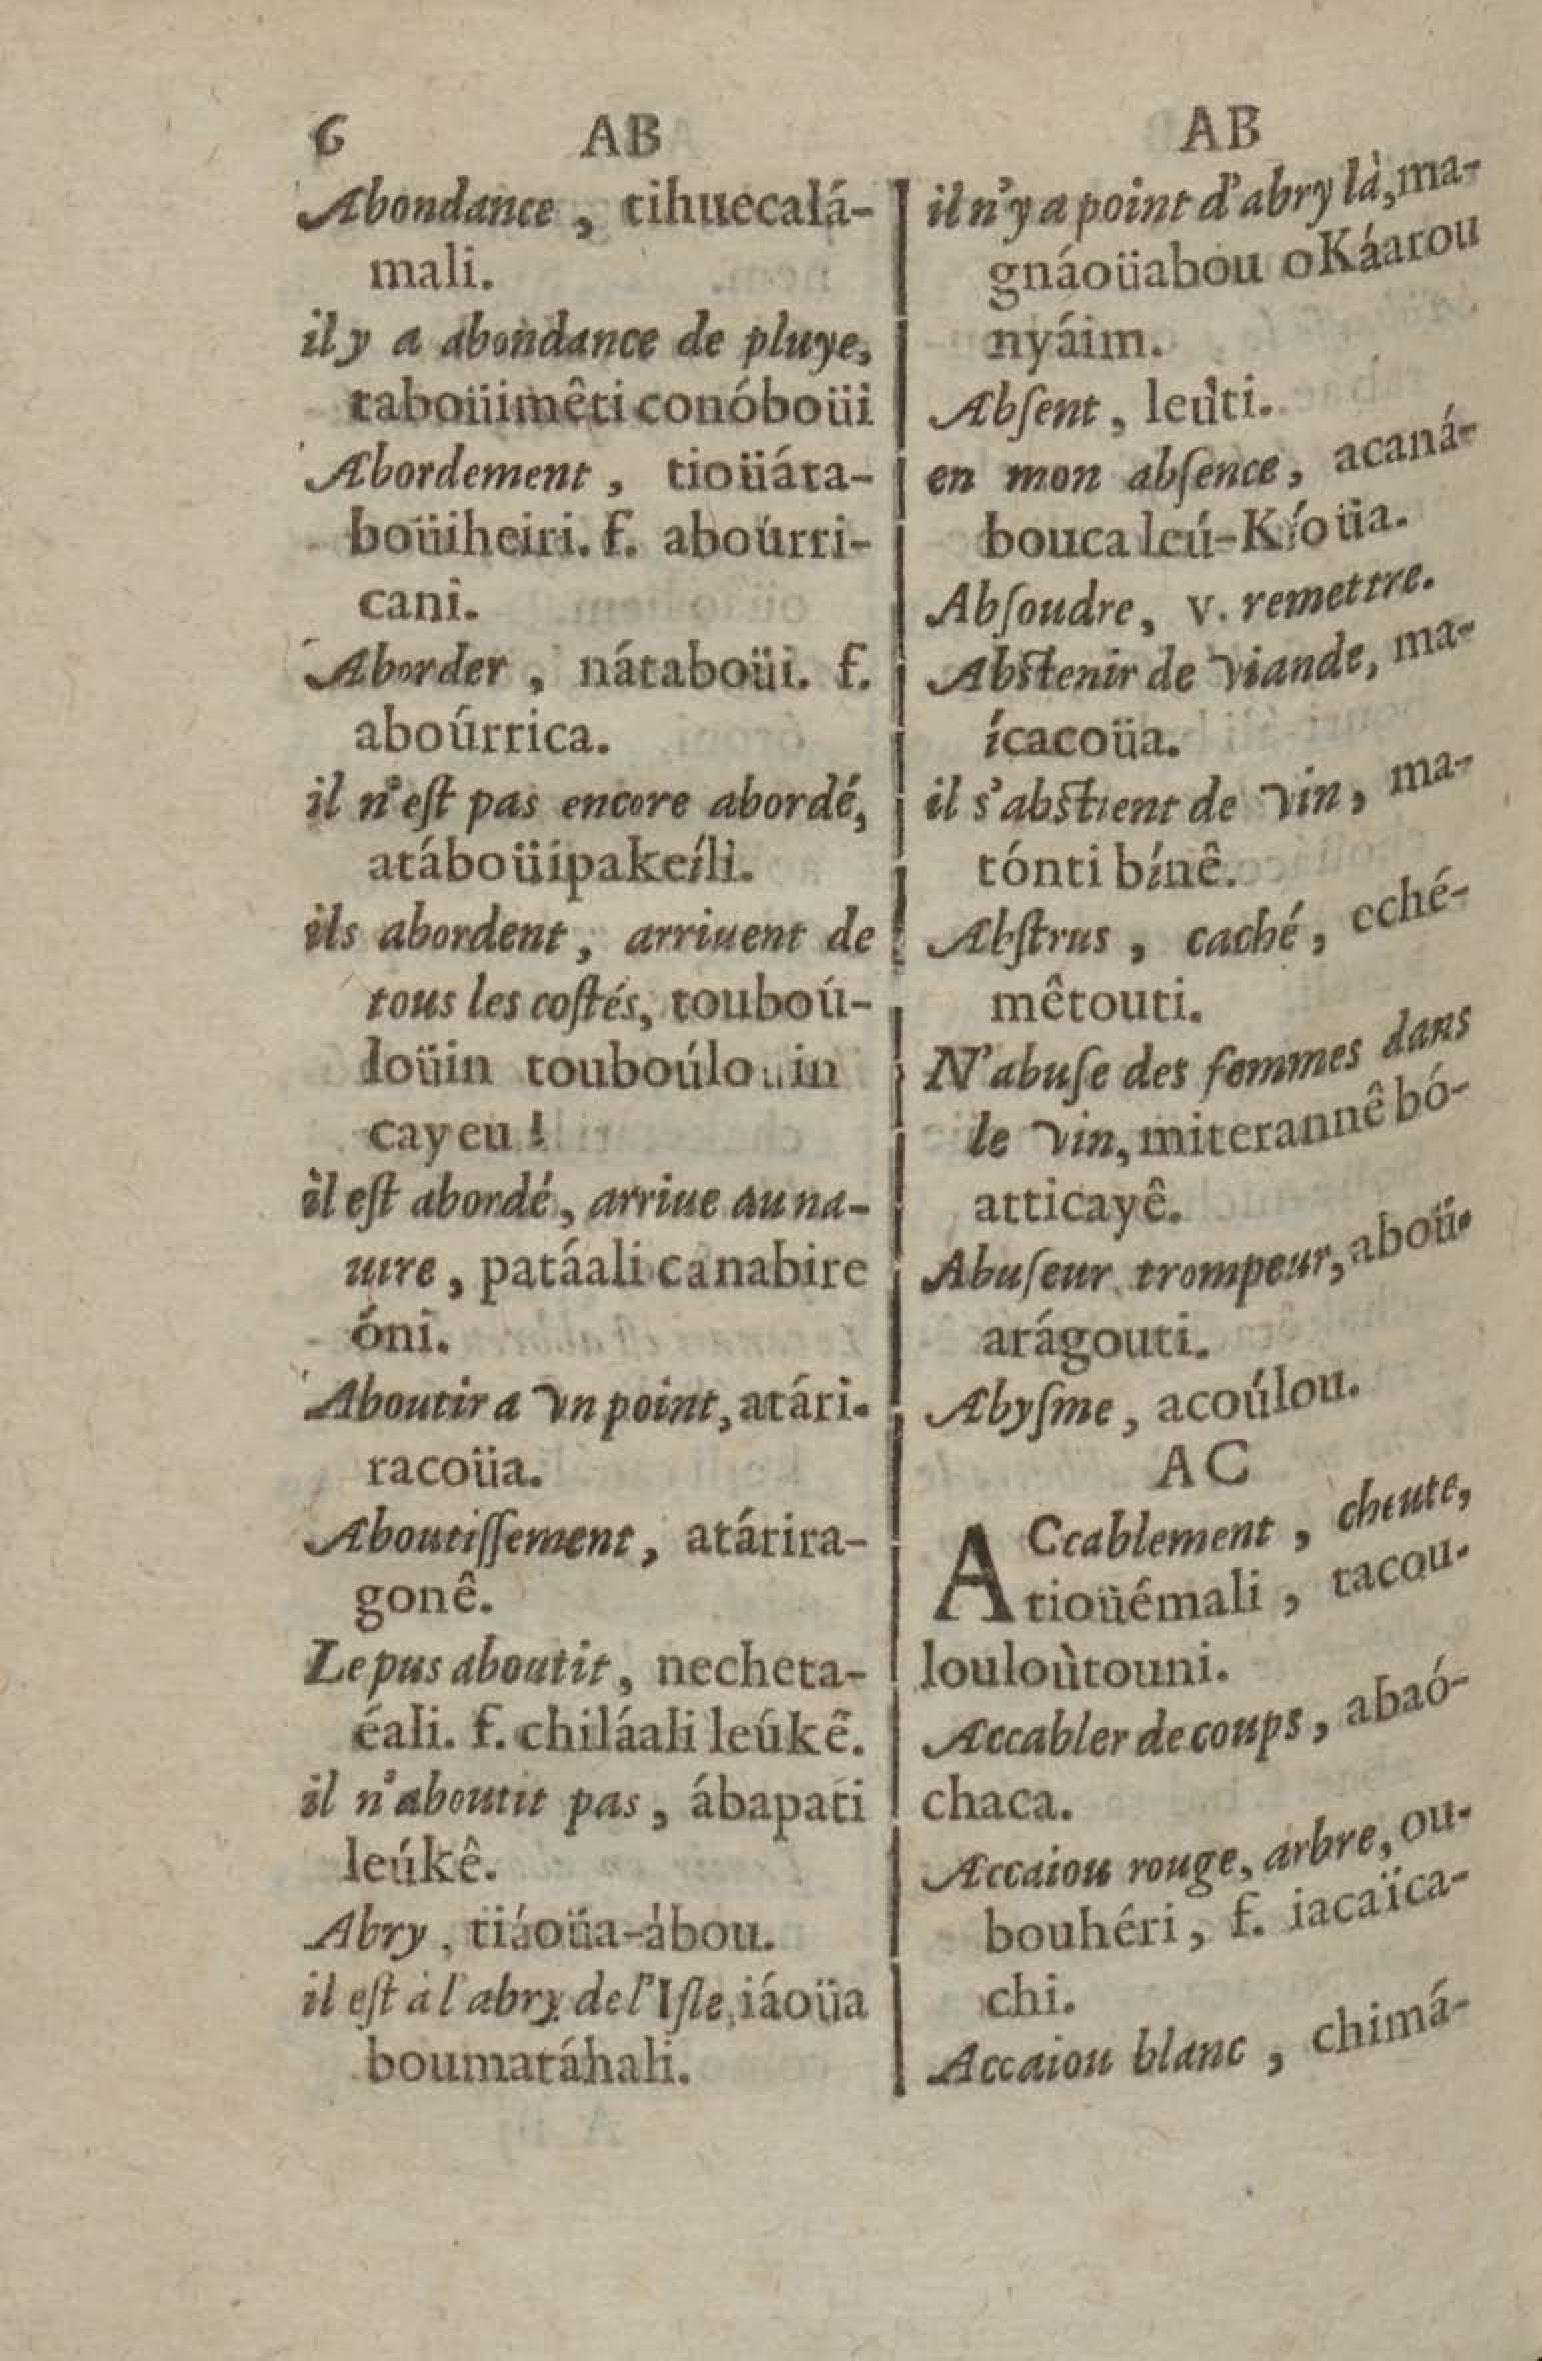 6 AB
Abondance, tihuecalá-
mali.
il y a abondance de pluye,
taboüimêti conóboüi
Abordement, tioüáta-
boüiheiri. f. aboúrri-
cani.
Aborder, nátaboüi. f.
aboúrrica.
il n'eſt pas encore abordé,
atáboüipakeíli.
ils abordent, arriuent de
tous les coſtés, touboú-
loüin touboúlouin
cayeu!
il eſt abordé, arriue au na-
uire, patáali canabire
óni.
Aboutir a vn point, atári-
racoüa.
Aboutiſſement, atárira-
gonê.
Le pus aboutit, necheta-
éali. f. chiláali leúkê.
il n'aboutit pas, ábapati
leúkê.
Abry, tiáoüa-àbou.
il eſt à l'abry de l'Iſle, iáoüa
boumatáhali.
AB
il n'y a point d'abry là, ma-
gnáoüabou oKáarou
nyáim.
Abſent, leùti.
en mon abſence, acaná-
bouca leú-Kíoüa.
Abſoudre, v. remettre.
Abſtenir de viande, ma-
ícacoüa.
il s'abſtient de vin, ma-
tónti bínê.
Abſtrus, caché, eché-
mêtouti.
N'abuſe des femmes dans
le vin, miterannê bó-
atticayê.
Abuſeur trompeur, aboü-
arágouti.
Abyſme, acoúlou.
AC
ACcablement, cheute,
tioüémali, tacou-
louloùtouni.
Accabler de coups, abaó-
chaca.
Accaiou rouge, arbre, ou-
bouhéri, f. iacaïca-
chi.
Accaiou blanc, chimá-